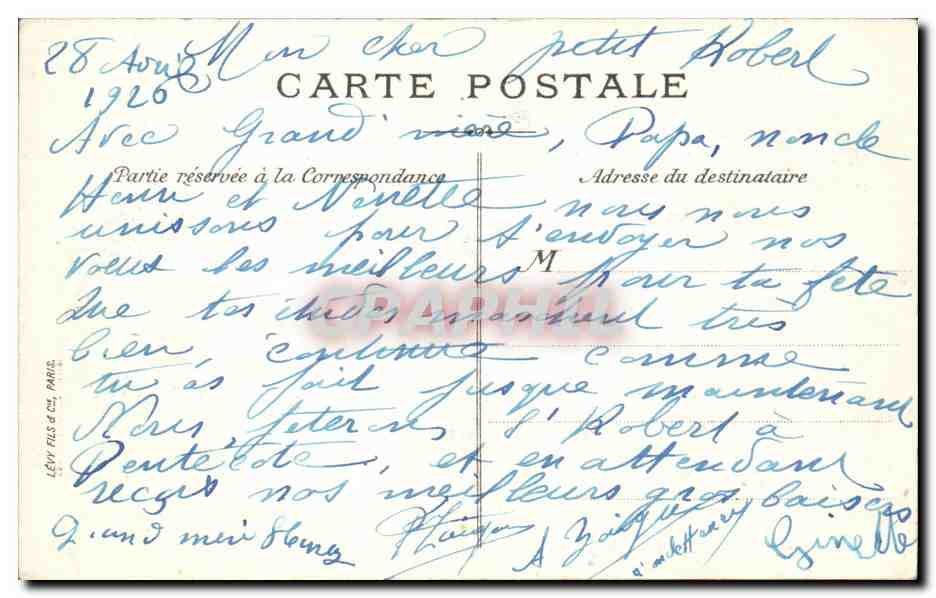 28 Avril Mon cher petit Robert
1926
CARTE POSTALE
Avec Grand'mère, Papa, noncle
Partie réservée à la Correspondance
Adresse du destinataire
Henri et Nénette nous nous
unissons pour t'envoyer nos
vœux les meilleurs pour ta fête
M
Que tes études marchent très
GRAPHILI
bien, continue comme
tu as fait jusque maintenant
Nous feterons St Robert à
Pentecôte, et en attendant
reçois nos meilleurs gros baisers
LÉVY FILS & Cie, PARIS.
Grand mère
A
Ginette